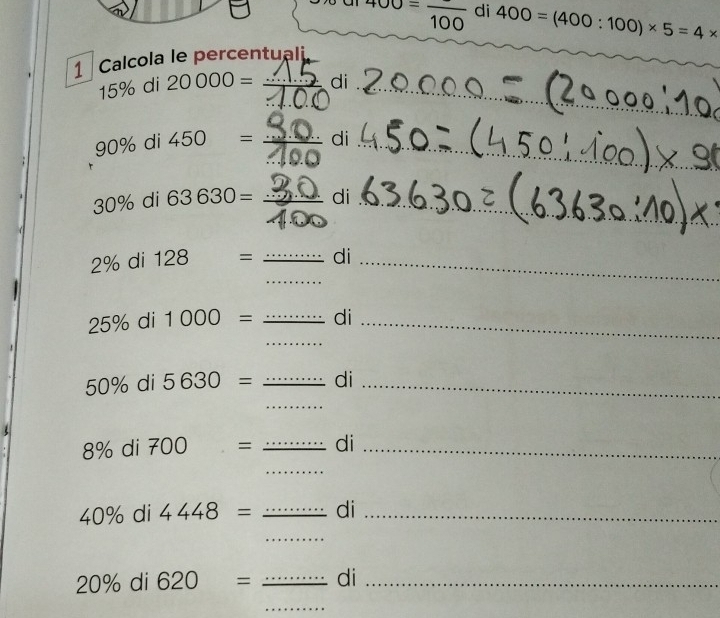 100 di 400 = (400 : 100) × 5 = 4 ×
1 Calcola le percentuali.
15% di 20 000 = 15/100 di 20000 = (20000:10
90% di 450 = 90/100 di 450 = (450:100) × 90
30% di 63 630 = 30/100 di 63630 = (63630:10) ×
2% di 128 = ......... / ......... di .........
25% di 1 000 = ......... / ......... di .........
50% di 5 630 = ......... / ......... di .........
8% di 700 = ......... / ......... di .........
40% di 4 448 = ......... / ......... di .........
20% di 620 = ......... / ......... di .........